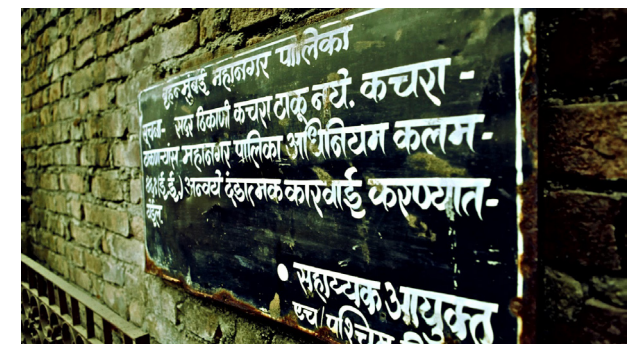 बृहन्मुंबई महानगर पालिका
सूचना- सदर ठिकाणी कचरा टाकू नये. कचरा -
टाकणाऱ्यांस महानगर पालिका अधिनियम कलम-
(ई.ई.) अन्वये दंडात्मक कारवाई करण्यात-
येईल
• सहाय्यक आयुक्त
एच/पश्चिम